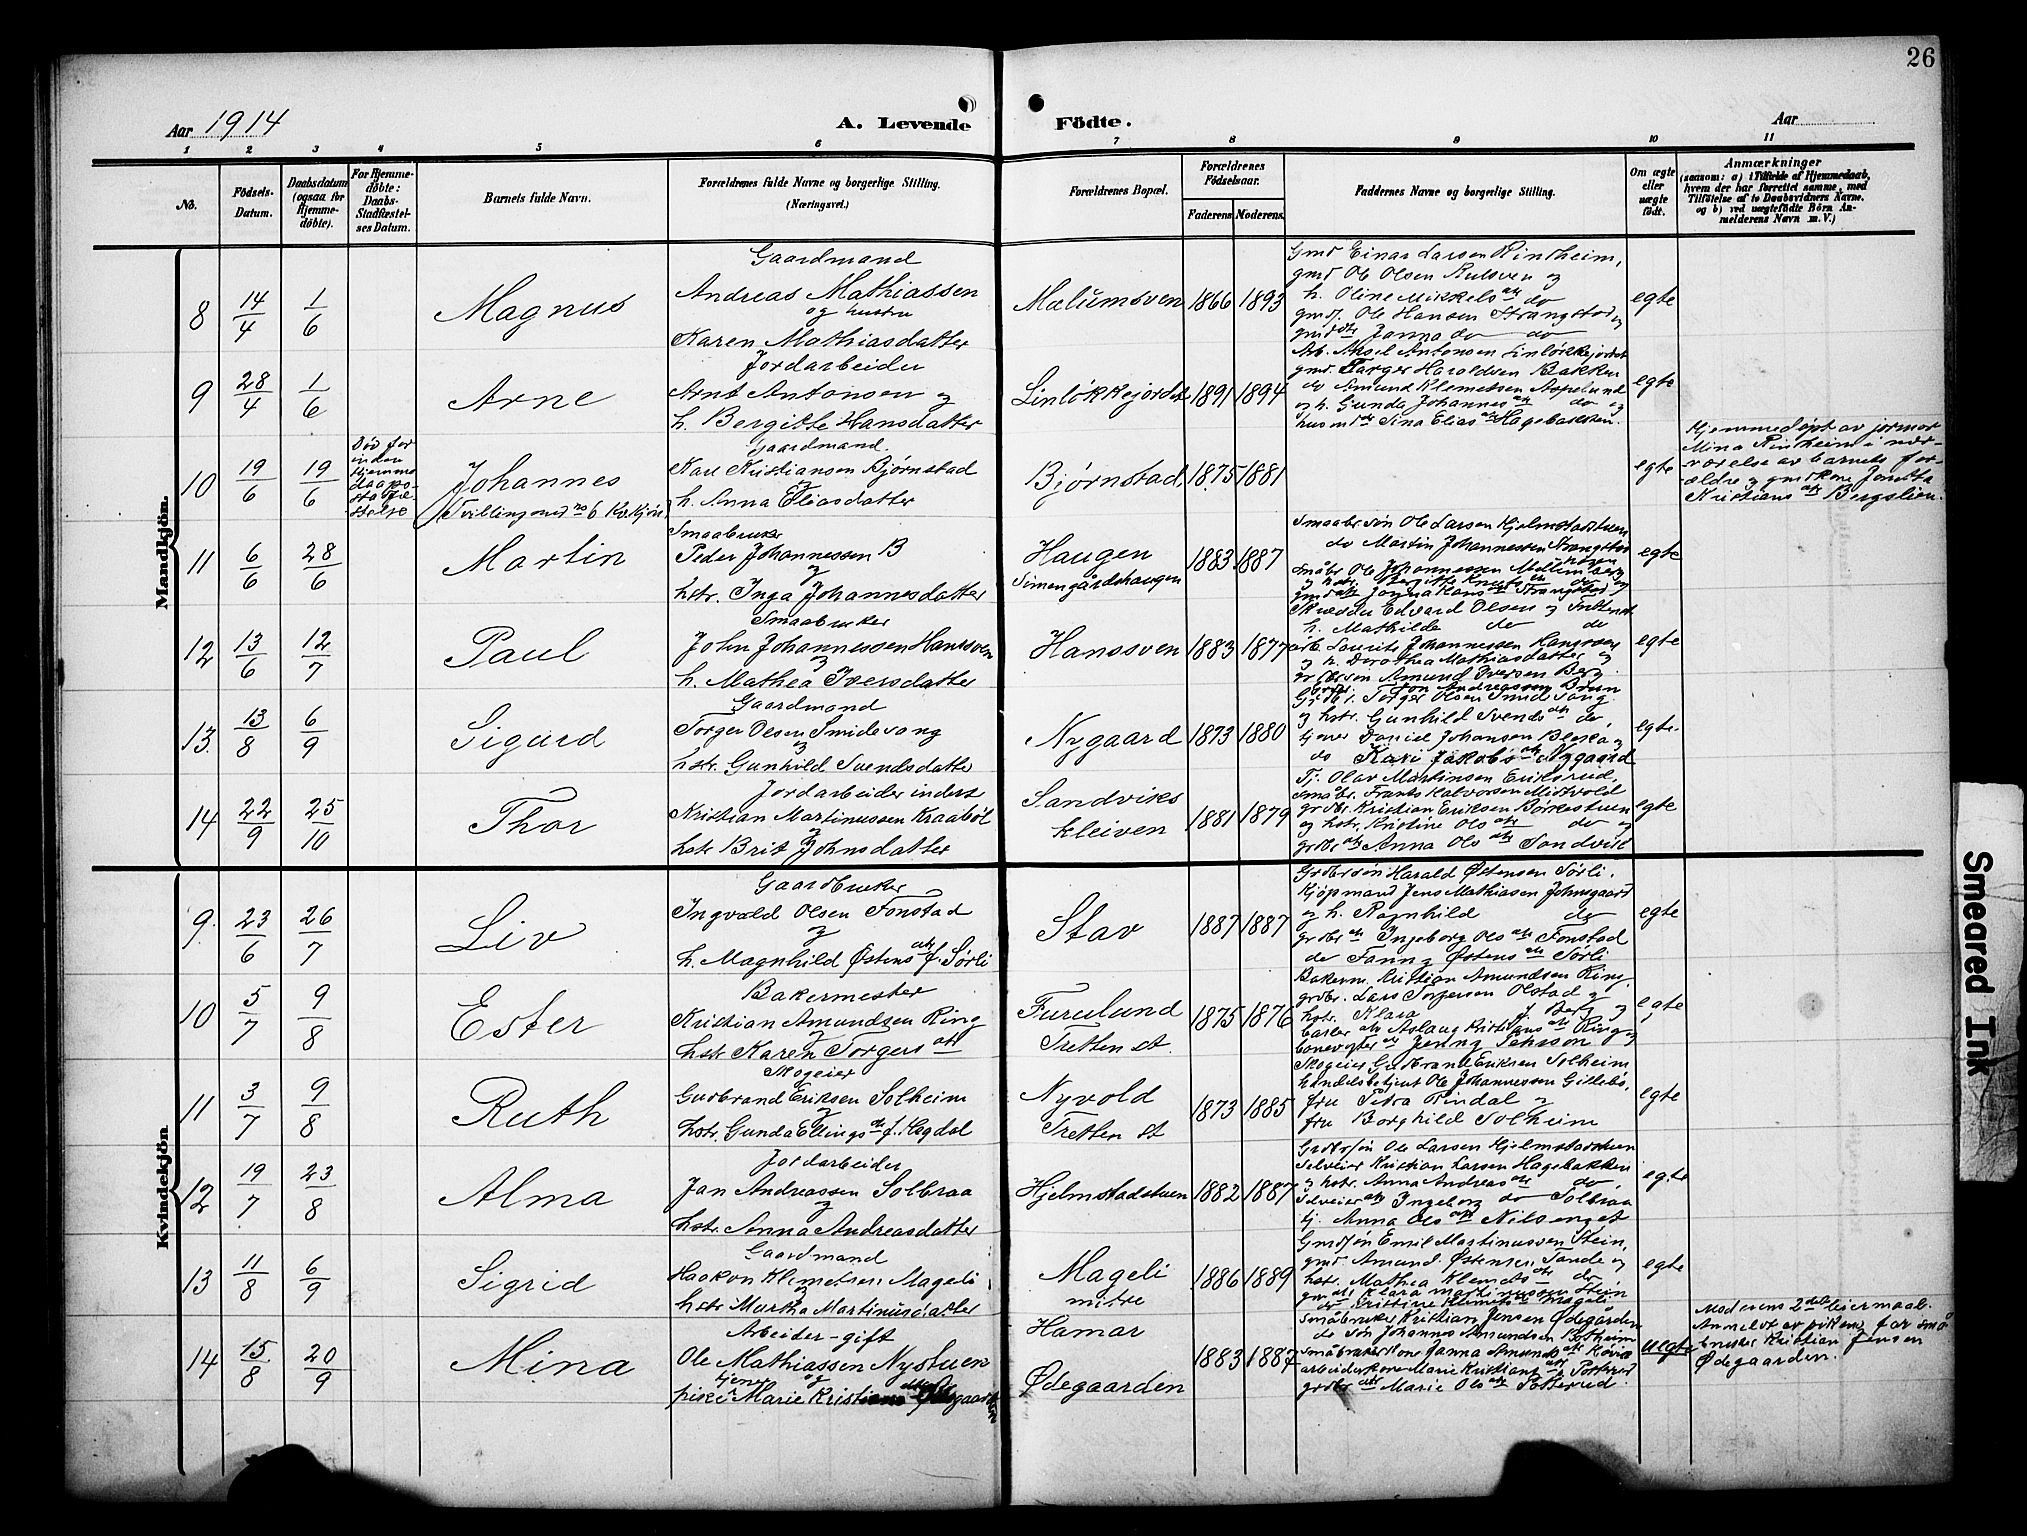 26
Aar 1914
A. Levende Födte.
Aar
1 2 3 4 5 6 7 8 9 10 11
No.
Födsels-Datum.
Daabsdatum (ogsaa for Hjemmedöbte).
For Hjemmedöbte: Daabs-Stadfæstelses Datum.
Barnets fulde Navn.
Forældrenes fulde Navne og borgerlige Stilling. (Næringsvei.)
Forældrenes Bopæl.
Forældrenes Födselsaar.
Faderens. Moderens.
Faddernes Navne og borgerlige Stilling.
Om ægte eller uægte födt.
Anmærkninger
(saasom: a) i Tilfælde af Hjemmedaab, hvem der har forrettet samme, med Tilföielse af to Daabsvidners Navne. og b) ved uægtefödte Börn Anmelderens Navn m. V.)
Mandkjön.
8 14/4 1/6 Magnus
Gaardmand
Andreas Mathiassen
og hustru
Karen Mathiasdatter
Mælumsven 1866 1893
Gmd Einar Larsen Rindheim,
gmd Ole Olsen Rulsven og
h. Oline Mikkelsdtr do
gmds. Ole Hansen Strangstad og
gmddtr Janna do do
egte
9 28/4 1/6 Arne
Jordarbeider
Arnt Antonsen og
h. Bergitte Hansdatter
Linløkkejordet 1891 1894
Arb. Aksel Antonsen Linløkkejordet
gmd. Torger Haroldsen Bakken
do Amund Klemetsen Aspelund
og h. Gunda Johannesdtr do og
husmdtr Sina Eliasdtr Hagebakken.
egte
10 19/6 19/6
Død før inden Hjemmedaapsstadfæstelse
Johannes
(Tvilling med no 6 Kv.kjøn)
Gaardmand.
Karl Kristiansen Bjørnstad
og
h. Anna Eliasdatter
Bjørnstad 1875 1881
egte
Hjemmedøpt av jormor
Mina Rindheim i nær-
værelse av barnets for-
ældre og gmdskone Jonetta
Kristiansdtr Bergslien.
11 6/6 28/6 Martin
Smaabruker
Peder Johannessen B
og
hstr. Inga Johannesdatter
Haugen
Simengårdshaugen
1883 1887
Smaabr. søn Ole Larsen Hjelmstadstuen
do Martin Johannessen Strangstad
småbr. Ole Johannessen
egte
12 13/6 12/7 Paul
Smaabruker
John Johannessen Hanssven
og
h. Mathea Iversdatter
Hanssven 1883 1877
Skrædder Edvard Olsen og
h. Mathilde do do
arb. Laurits Johannessen Hanssven
og h. Dorothea Mathiasdatter og
gr.br.søn Amund Iversen Berg
egte
13. 13/8 6/9 Sigurd
Gaardmand
Torger Olsen Smidesang
og
hstr. Gunhild Svendsdatter
Nygaard 1873 1880
og hstr. Gunhild Svendsdtr do,
tjener Daniel Johansen Bleka og
do Kari Jakobsdtr Nygaard
egte.
14 22/9 25/10 Thor
Jordarbeider inderst
Kristian Martinussen Kraabøl
og
hstr Brit Johnsdatter
Sandviks
kleiven
1881 1879
Tj. Olav Martinsen Eriksrud,
Småbr. Frants Halvorsen Midtvold
grdbr. Kristian Eriksen Børkestuen
og hstr. Kristine Olsdtr do og
grdbrdtr Anna Olsdtr Sandvik
egte
Kvindekjön.
9. 23/6 26/7 Liv
Gaardbruker
Ingvald Olsen Fonstad
og
h. Magnhild Østensdtr f. Sørli
Stav 1887 1887
Grdbrsøn Harald Østensen Sørli.
Kjøpmand Jens Mathiasen Johnsgaard
og h. Ragnhild do
grdbrdtr Ingeborg Olsdtr Fonstad
do Fanny Østensdtr Sørli
egte
10 5/7 9/8 Ester
Bakermester
Kristian Amundsen Ring
og
hstr Karen Torgersdtr
Furulund
Tretten st.
1875 1876
Bakerm. Kristian Amundsen Ring,
grdbr. Lars Torgersen Olstad og
hstr. Klara f. Berg og
egte
11 3/7 9/8 Ruth
Skogeier
Gudbrand Eriksen Solheim
og
hstr. Gunda Ellingsdtr f. Hagdal
Nyvold
Tretten st
1873 1885
Skogeier Gudbrand Eriksen Solheim,
handelsbetjent Ole Johannessen Gillebo,
fru Petra Rindal og
fru Borghild Solheim
egte
12 19/7 23/8 Alma
Jordarbeider
Jan Andreassen Solbraa
og
hstr. Anna Andreasdatter
Hjelmstadstuen 1882 1887
Grdbrsøn Ole Larsen Hjelmstadstuen
Selveier Kristian Larsen Hagebakken
og hstr. Anna Andreasdtr do,
Selveierdtr Ingeborg do Solbraa
tj. Anna Olsdtr Nilsenget
egte
13 11/8 6/9 Sigrid
Gaardmand
Haakon Klemetsen Mageli
og
hstr Martha Martinusdatter
Mageli
nitre
1886 1889
Gmdsøn Emil Martinussen Stein,
gmd. Amund Østensen Tande og
hstr. Mathea Klemetsdtr do
gmdtr Klara Martinussen Stein
egte
14 15/8 20/9 Mina
Arbeider - gift
Ole Mathiassen Nystuen
og
tjener
pike Marie Kristiansdtr Ødegaarden
Hamar
Ødegaarden
1883 1887
Småbruker Kristian Jensen Ødegården
do søn Johannes Amundsen
grdbrdtr Marie Olsdtr
uegte
Moderens 2det leiermaal.
Anmeldt av pikens far små-
bruker Kristian Jensen
Ødegaarden.
Smeared Ink